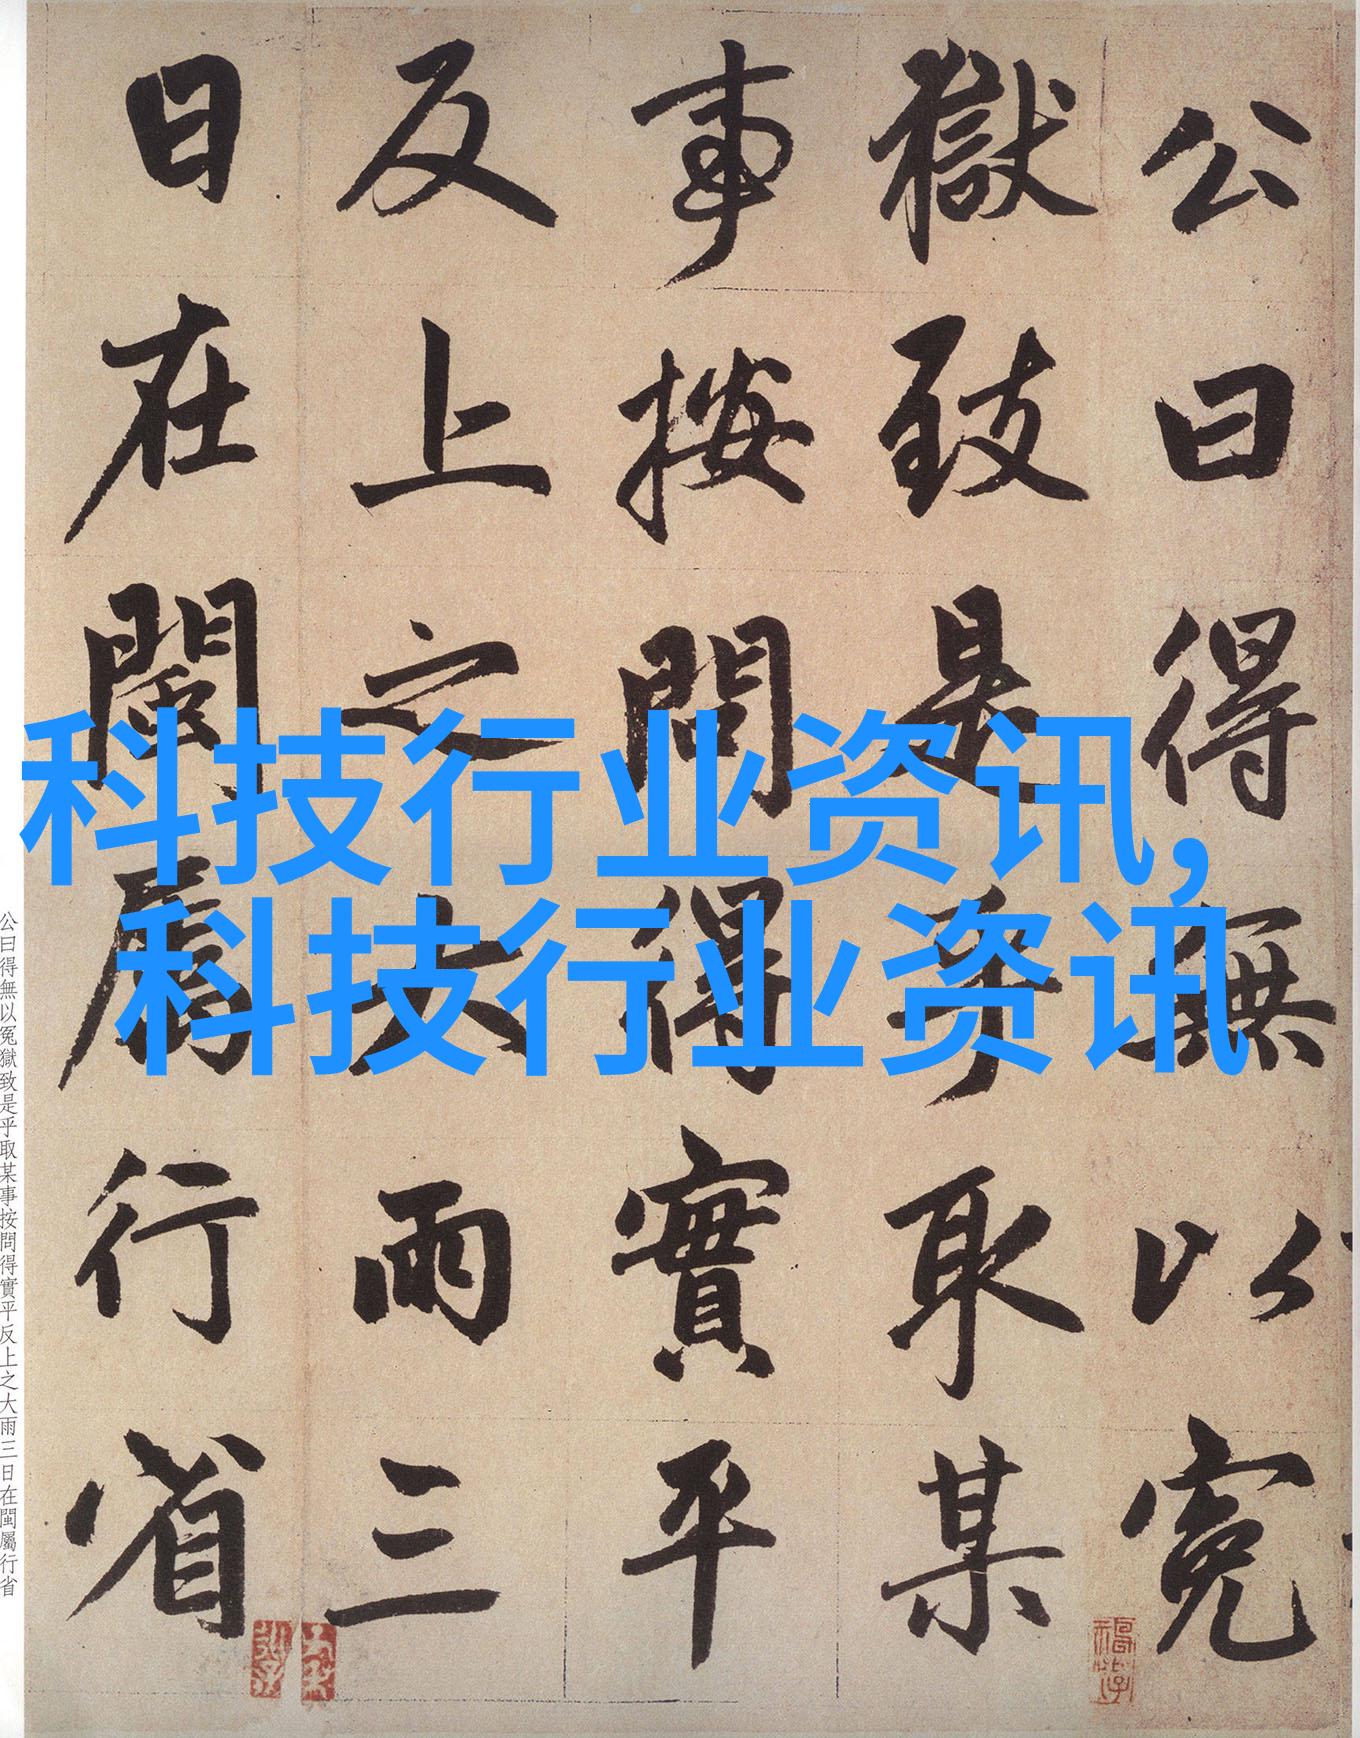 公曰得無以冤
獄致是乎取某
事按問得實平
反上之大雨三
日在閩屬行省
科技行业资讯,
科技行业资讯
公曰得無以冤獄致是乎取某事按問得實平反上之大雨三日在閩屬行省